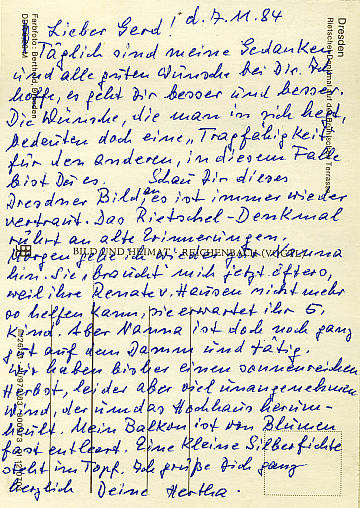 Lieber Gerd! d. 7. 11. 84
Täglich sind meine Gedanken
und alle guten Wünsche bei Dir. Ich
hoffe, es geht Dir besser und besser.
Die Wünsche, die man in sich hegt,
bedeuten doch eine „Tragfähigkeit"
für den anderen, in diesem Falle
bist Du es. Schau Dir dieses
Dresdner Bild an, es ist immer wieder
vertraut. Das Rietschel-Denkmal
rührt an alte Erinnerungen.
Morgen gehe ich wieder zu Nanna
hin. Sie braucht mich jetzt öfters,
weil ihre Renate v. Hausen nicht mehr
so helfen kann, sie erwartet ihr 5.
Kind. Aber Nanna ist doch noch ganz
gut auf dem Damm und tätig.
Wir haben bisher einen sonnenreichen
Herbst, leider aber viel unangenehmen
Wind, der um das Hochhaus herum-
heult. Mein Balkon ist von Blumen
fast entleert. Eine kleine Silberfichte
steht im Topf. Ich grüße Dich ganz
herzlich Deine Hertha.
Dresden
Rietschel-Denkmal auf der Brühlschen Terrasse
Farbfoto: Berthold, Dresden
BILD UND HEIMAT REICHENBACH (VOGTL)